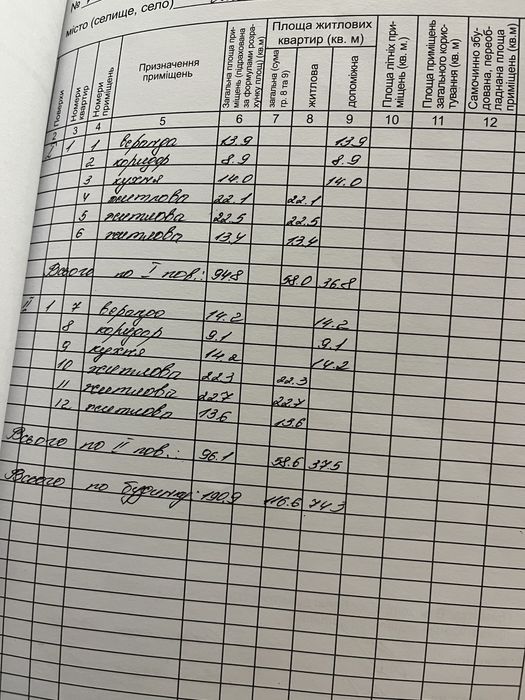 №
місто (селище, село)
Поверхи
Номери квартир
Номери приміщень
Призначення приміщень
Загальна площа приміщень (підрахована за формулами розрахунку площ) (кв.м)
Площа житлових квартир (кв. м)
загальна (сума гр. 8 та 9)
житлова
допоміжна
Площа літніх приміщень (кв. м)
Площа приміщень загального користування (кв. м)
Самочинно збудована, переобладнана площа приміщень (кв.м)
2 3 4 5 6 7 8 9 10 11 12
I 1 1 веранда 13.9 13.9
2 коридор 8.9 8.9
3 кухня 14.0 14.0
4 житлова 22.1 22.1
5 житлова 22.5 22.5
6 житлова 13.4 13.4
Всього по I пов.: 94.8 58.0 36.8
II 1 7 веранда 14.2 14.2
8 коридор 9.1 9.1
9 кухня 14.2 14.2
10 житлова 22.3 22.3
11 житлова 22.7 22.7
12 житлова 13.6 13.6
Всього по II пов.: 96.1 58.6 37.5
Всього по будинку: 190.9 116.6 74.3